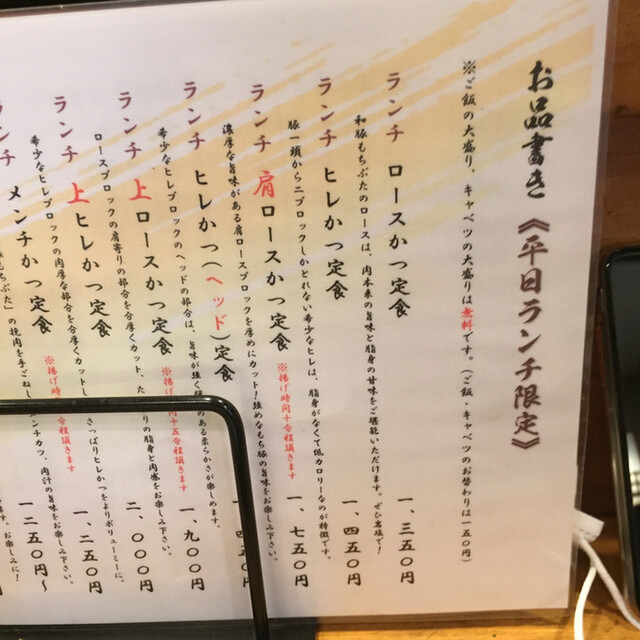 お品書き《平日ランチ限定》
※ご飯の大盛り、キャベツの大盛りは無料です。(ご飯・キャベツのお替わりは一五〇円)
ランチ ロースかつ定食 一、三五〇円
和豚もちぶたのロースは、肉本来の旨味と脂身の甘味をご堪能いただけます。ぜひ岩塩で!
ランチ ヒレかつ定食 一、四五〇円
豚一頭から二ブロックしかとれない希少なヒレは、脂身がなくて低カロリーなのが特徴です。
ランチ 肩ロースかつ定食 ※揚げ時間十分程頂きます 一、七五〇円
濃厚な旨味がある肩ロースブロックを厚めにカット!強めなもち豚の旨味をお楽しみ下さい。
ランチ ヒレかつ(ヘッド)定食 四五〇円
希少なヒレブロックのヘッドの部分は、旨味が強く のある柔らかさが楽しめます。
ランチ 上ロースかつ定食 ※揚げ時間十五分程頂きます 一、九〇〇円
ロースブロックの肩寄りの部分を分厚くカット、た りの脂身と肉感をお楽しみ下さい。
ランチ 上ヒレかつ定食 二、〇〇〇円
希少なヒレブロックの肉厚な部分を分厚くカットし さっぱりヒレかつをよりボリューミーに。
ンチ メンチかつ定食 ※揚げ時 分程頂きます 一、二五〇円
もちぶた」の挽肉を手ごねし ンチカツ、肉汁の旨味をお楽しみ下さい。
定食 一二五〇円〜
ます。お楽しみに!